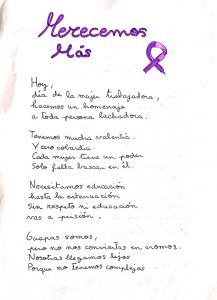 Merecemos
Más
Hoy,
día de la mujer trabajadora,
hacemos un homenaje
a toda persona luchadora.
Tenemos mucha valentía.
Y cero cobardía.
Cada mujer tiene un poder
Solo falta buscar en él.
Necesitamos educación
hasta la extenuación
Sin respeto ni educación
vas a prisión.
Guapas somos,
pero no nos conviertas en cromos.
Nosotras llegamos lejos
Porque no tenemos complejos